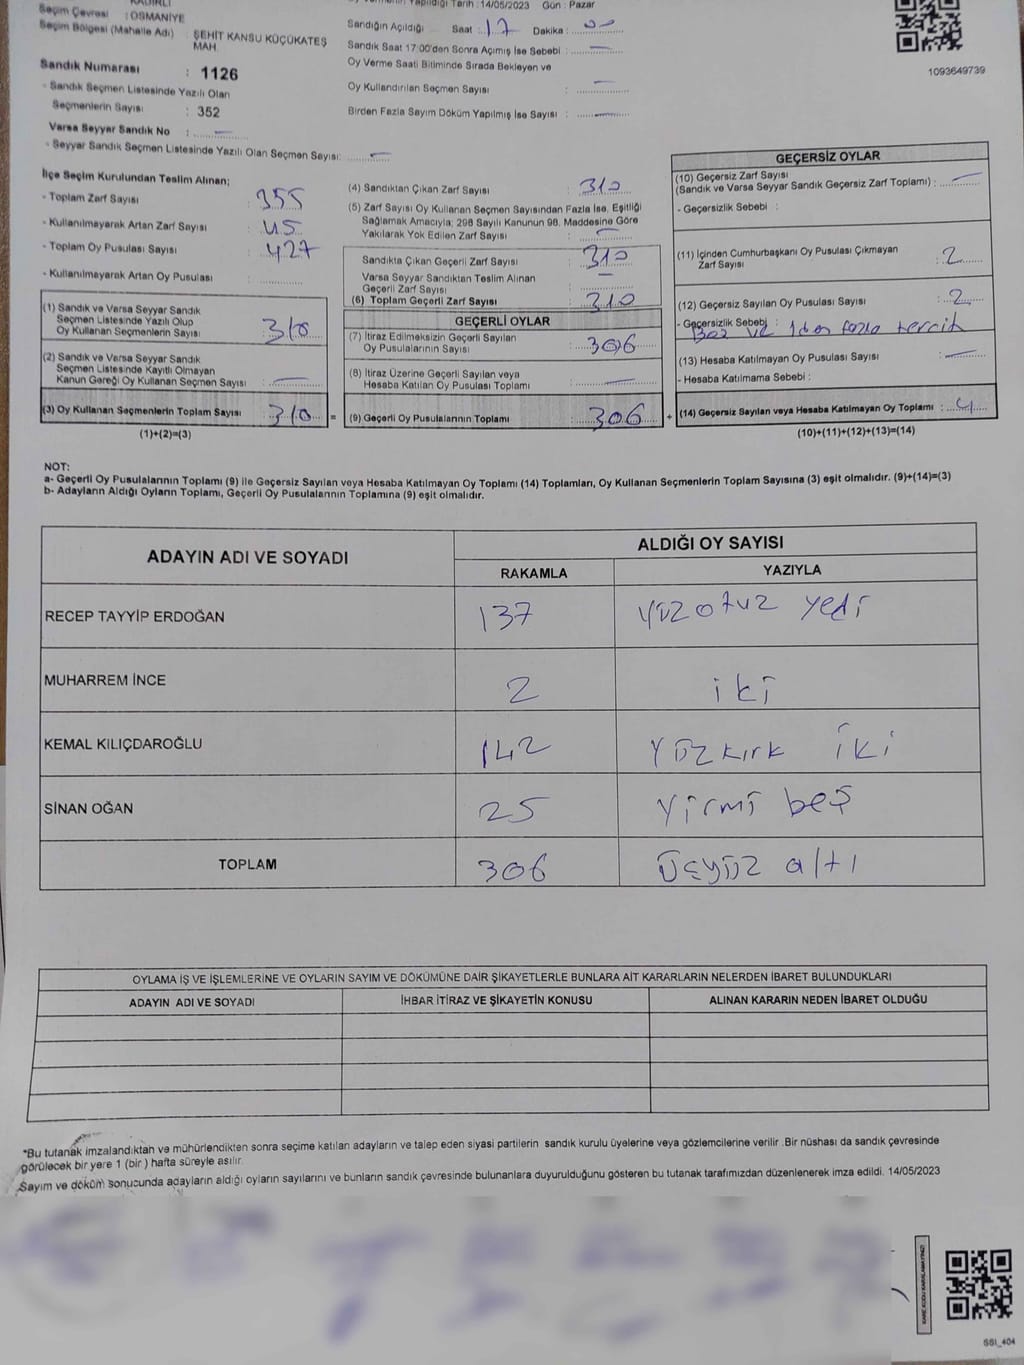 KADİRLİ
Seçim Çevresi : OSMANİYE
Seçim Bölgesi (Mahalle Adı) : ŞEHİT KANSU KÜÇÜKATEŞ MAH.
Sandık Numarası : 1126
- Sandık Seçmen Listesinde Yazılı Olan
Seçmenlerin Sayısı : 352
Varsa Seyyar Sandık No : —
- Seyyar Sandık Seçmen Listesinde Yazılı Olan Seçmen Sayısı: —
Yapıldığı Tarih : 14/05/2023 Gün : Pazar
Sandığın Açıldığı Saat : 17 Dakika :
Sandık Saat 17:00'den Sonra Açımış İse Sebebi : —
Oy Verme Saati Bitiminde Sırada Bekleyen ve
Oy Kullandırılan Seçmen Sayısı : —
Birden Fazla Sayım Döküm Yapılmış İse Sayısı : —
1093649739
İlçe Seçim Kurulundan Teslim Alınan;
- Toplam Zarf Sayısı : 355
- Kullanılmayarak Artan Zarf Sayısı : 45
- Toplam Oy Pusulası Sayısı : 427
- Kullanılmayarak Artan Oy Pusulası :
(1) Sandık ve Varsa Seyyar Sandık
Seçmen Listesinde Yazılı Olup
Oy Kullanan Seçmenlerin Sayısı : 310
(2) Sandık ve Varsa Seyyar Sandık
Seçmen Listesinde Kayıtlı Olmayan
Kanun Gereği Oy Kullanan Seçmen Sayısı : —
(3) Oy Kullanan Seçmenlerin Toplam Sayısı : 310 =
(1)+(2)=(3)
(4) Sandıktan Çıkan Zarf Sayısı : 310
(5) Zarf Sayısı Oy Kullanan Seçmen Sayısından Fazla İse, Eşitliği
Sağlamak Amacıyla; 298 Sayılı Kanunun 98. Maddesine Göre
Yakılarak Yok Edilen Zarf Sayısı : —
Sandıkta Çıkan Geçerli Zarf Sayısı : 310
Varsa Seyyar Sandıktan Teslim Alınan
Geçerli Zarf Sayısı : —
(6) Toplam Geçerli Zarf Sayısı : 310
GEÇERLİ OYLAR
(7) İtiraz Edilmeksizin Geçerli Sayılan
Oy Pusulalarının Sayısı : 306
(8) İtiraz Üzerine Geçerli Sayılan veya
Hesaba Katılan Oy Pusulası Toplamı : —
(9) Geçerli Oy Pusulalarının Toplamı : 306 +
GEÇERSİZ OYLAR
(10) Geçersiz Zarf Sayısı
(Sandık ve Varsa Seyyar Sandık Geçersiz Zarf Toplamı) : —
- Geçersizlik Sebebi :
(11) İçinden Cumhurbaşkanı Oy Pusulası Çıkmayan
Zarf Sayısı : 2
(12) Geçersiz Sayılan Oy Pusulası Sayısı : 2
- Geçersizlik Sebebi : Boş ve 1den fazla tercih
(13) Hesaba Katılmayan Oy Pusulası Sayısı : —
- Hesaba Katılmama Sebebi :
(14) Geçersiz Sayılan veya Hesaba Katılmayan Oy Toplamı : 4
(10)+(11)+(12)+(13)=(14)
NOT:
a- Geçerli Oy Pusulalarının Toplamı (9) ile Geçersiz Sayılan veya Hesaba Katılmayan Oy Toplamı (14) Toplamları, Oy Kullanan Seçmenlerin Toplam Sayısına (3) eşit olmalıdır. (9)+(14)=(3)
b- Adayların Aldığı Oyların Toplamı, Geçerli Oy Pusulalarının Toplamına (9) eşit olmalıdır.
ADAYIN ADI VE SOYADI ALDIĞI OY SAYISI
RAKAMLA YAZIYLA
RECEP TAYYİP ERDOĞAN 137 yüzotuz yedi
MUHARREM İNCE 2 iki
KEMAL KILIÇDAROĞLU 142 yüzkırk iki
SİNAN OĞAN 25 yirmi beş
TOPLAM 306 üçyüz altı
OYLAMA İŞ VE İŞLEMLERİNE VE OYLARIN SAYIM VE DÖKÜMÜNE DAİR ŞİKAYETLERLE BUNLARA AİT KARARLARIN NELERDEN İBARET BULUNDUKLARI
ADAYIN ADI VE SOYADI İHBAR İTİRAZ VE ŞİKAYETİN KONUSU ALINAN KARARIN NEDEN İBARET OLDUĞU
*Bu tutanak imzalandıktan ve mühürlendikten sonra seçime katılan adayların ve talep eden siyasi partilerin sandık kurulu üyelerine veya gözlemcilerine verilir .Bir nüshası da sandık çevresinde
görülecek bir yere 1 (bir ) hafta süreyle asılır.
Sayım ve döküm sonucunda adayların aldığı oyların sayılarını ve bunların sandık çevresinde bulunanlara duyurulduğunu gösteren bu tutanak tarafımızdan düzenlenerek imza edildi. 14/05/2023
KARE KODU KARALAMAYINIZ!
SSI_404